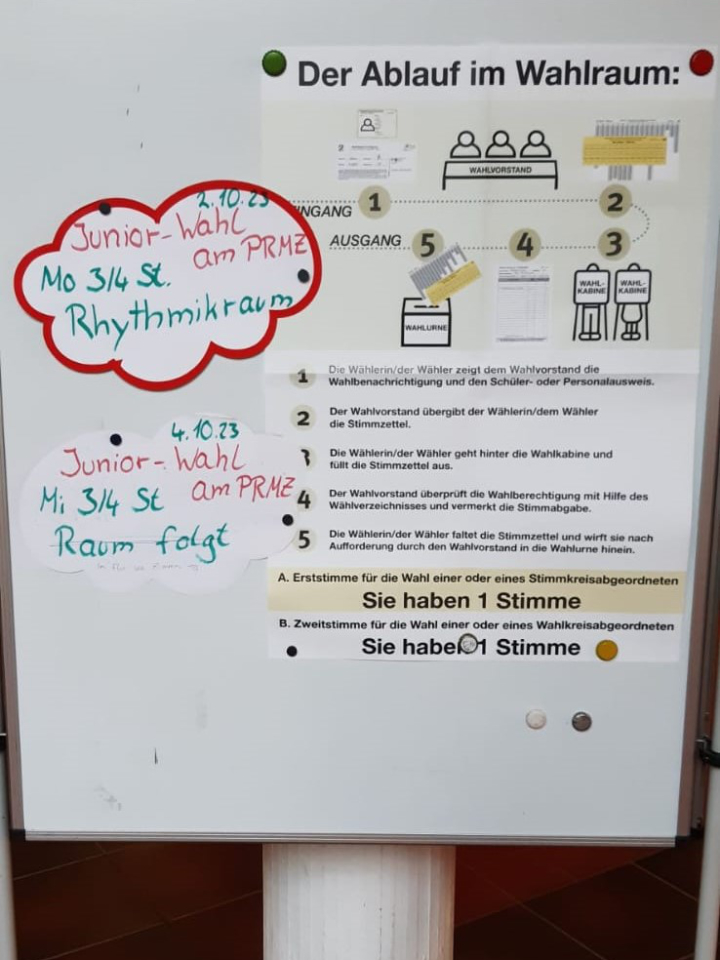 Der Ablauf im Wahlraum:
WAHLVORSTAND
INGANG 1
2
AUSGANG 5
4
3
WAHLURNE
WAHL-
KABINE
WAHL-
KABINE
2.10.23
Junior-Wahl
am PRMZ
Mo 3/4 St.
Rhythmikraum
4.10.23
Junior-Wahl
am PRMZ
Mi 3/4 St
Raum folgt
1 Die Wählerin/der Wähler zeigt dem Wahlvorstand die
Wahlbenachrichtigung und den Schüler- oder Personalausweis.
2 Der Wahlvorstand übergibt der Wählerin/dem Wähler
die Stimmzettel.
3 Die Wählerin/der Wähler geht hinter die Wahlkabine und
füllt die Stimmzettel aus.
4 Der Wahlvorstand überprüft die Wahlberechtigung mit Hilfe des
Wählverzeichnisses und vermerkt die Stimmabgabe.
5 Die Wählerin/der Wähler faltet die Stimmzettel und wirft sie nach
Aufforderung durch den Wahlvorstand in die Wahlurne hinein.
A. Erststimme für die Wahl einer oder eines Stimmkreisabgeordneten
Sie haben 1 Stimme
B. Zweitstimme für die Wahl einer oder eines Wahlkreisabgeordneten
Sie haben 1 Stimme